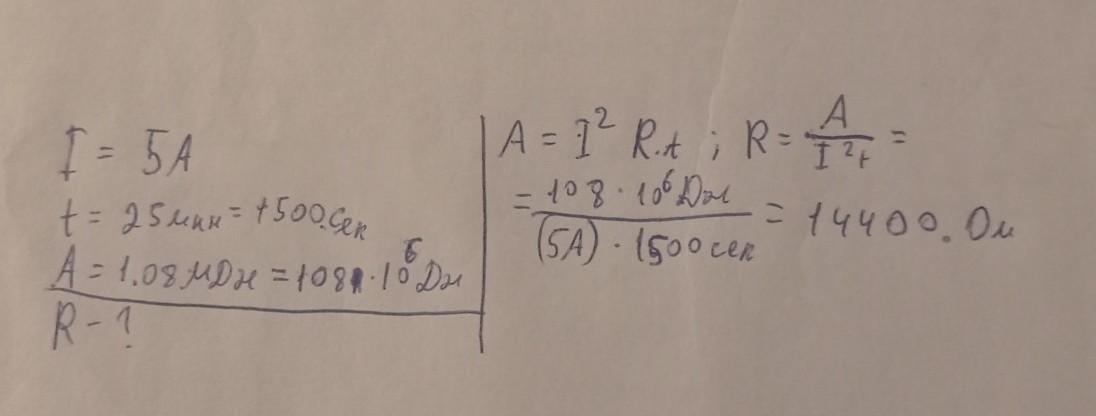 I = 5A
t = 25 мин = 1500.сек
A = 1.08 МДж = 108 · 10⁶ Дж
R - ?
A = I² R.t ; R = A / I² t =
= 108 · 10⁶ Дж / (5A) · 1500 сек = 14400. Ом